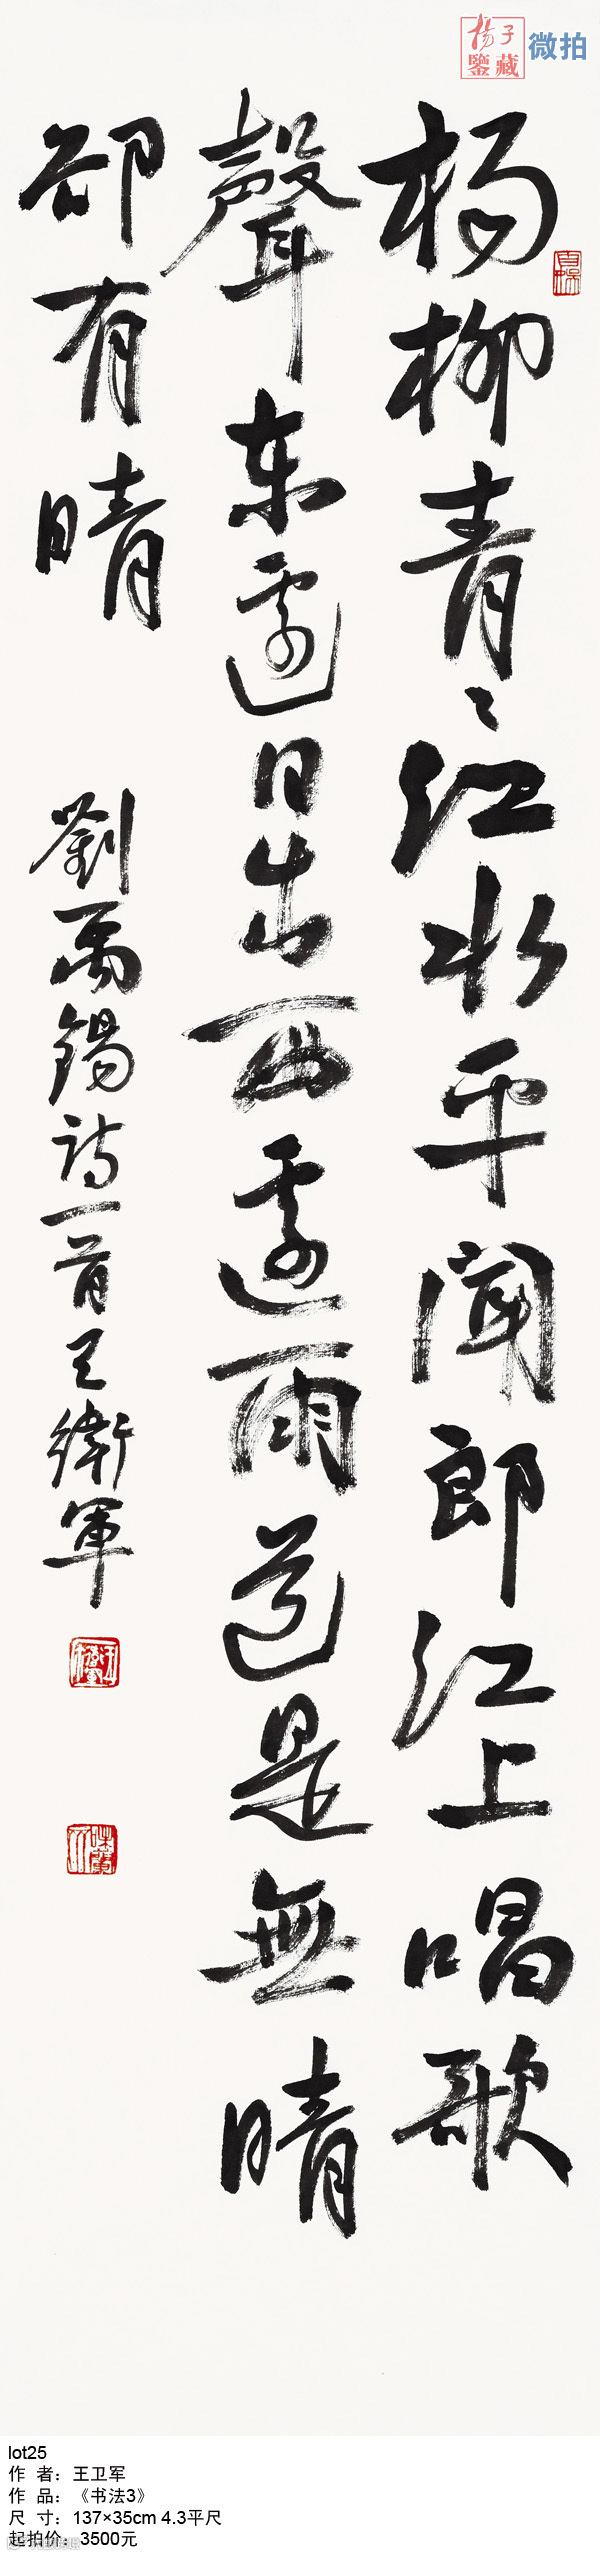 杨子
鉴藏
微拍
杨柳青〻江水平闻郎江上唱歌
聲东邊日出西邊雨道是無晴
卻有晴
劉禹錫詩一首王衛軍
lot25
作 者：王卫军
作 品：《书法3》
尺 寸：137×35cm 4.3平尺
起拍价：3500元